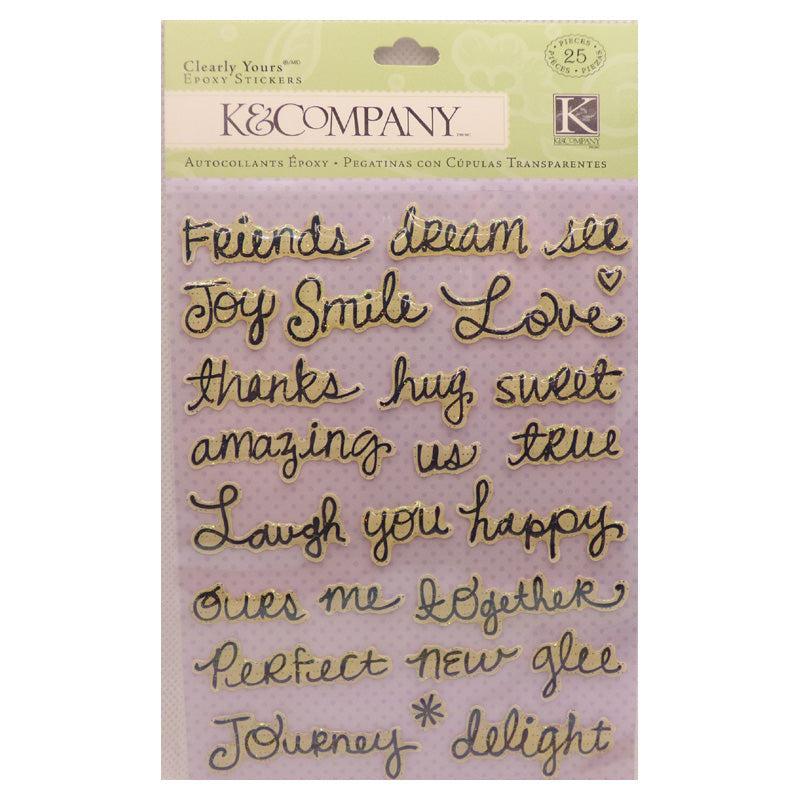 Clearly Yours
EPOXY STICKERS
PIECES 25 PIÈCES • PIEZAS
K&COMPANY
K
K&COMPANY
AUTOCOLLANTS ÉPOXY • PEGATINAS CON CÚPULAS TRANSPARENTES
Friends dream see
Joy Smile Love
thanks hug sweet
amazing us true
Laugh you happy
ours me together
Perfect new glee
Journey * delight